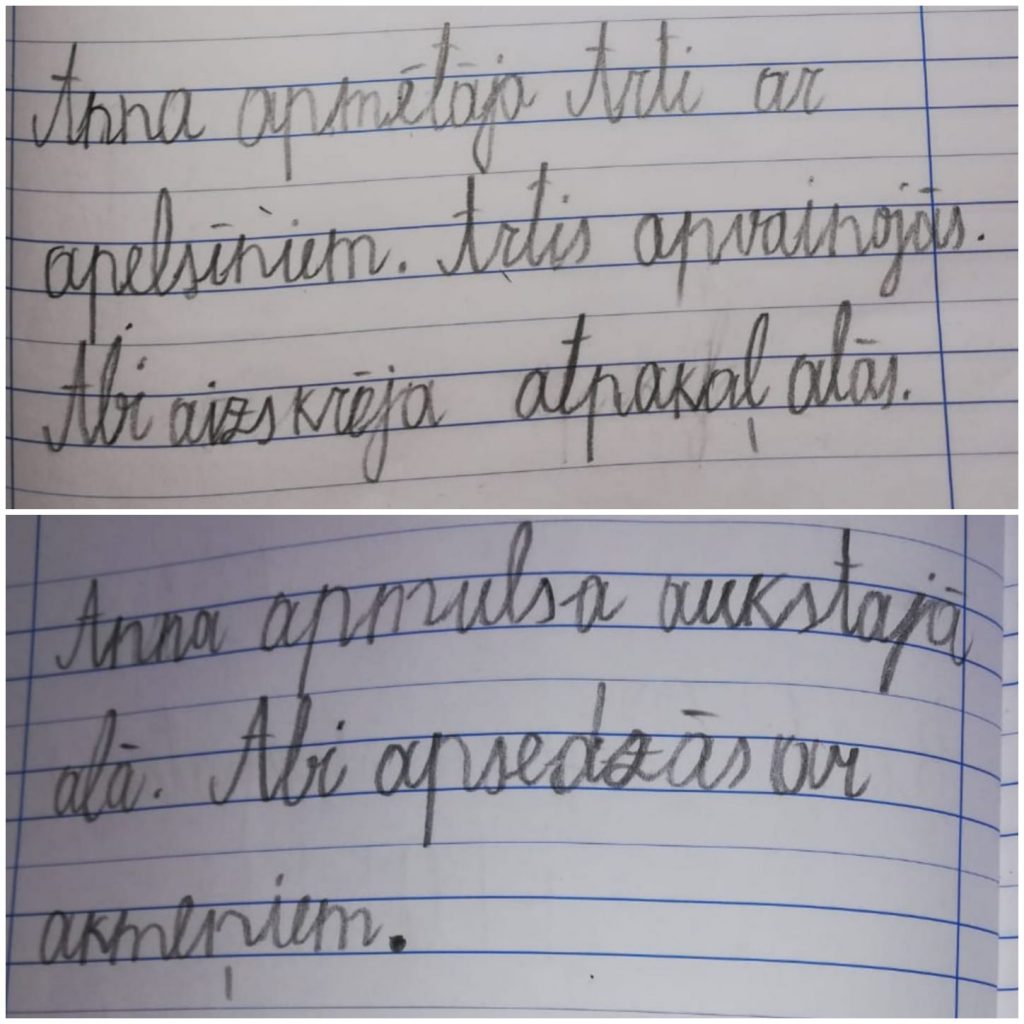 Anna apmētāja Arti ar
apelsīniem. Artis apvainojās.
Abi aizskrēja atpakaļ alās.
Anna apmulsa aukstajā
alā. Abi apsedzās ar
akmeņiem.